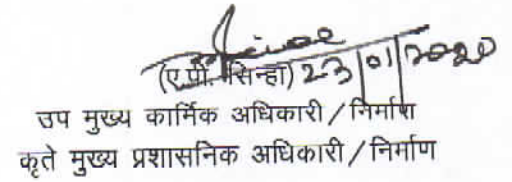 (ए.पी. सिन्हा) 23/01/2020
उप मुख्य कार्मिक अधिकारी/निर्माण
कृते मुख्य प्रशासनिक अधिकारी/निर्माण